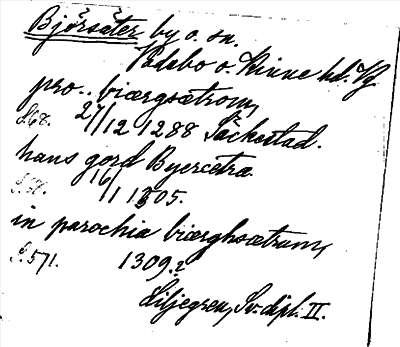 Björsäter by o. sn.
Vadsbo o. Kinne hd. Vg
pro.. biærgsætrom,
27/12 1288 Säckestad.
hans gord Byercetra
16/1 1505.
in parochia biærghsætrum,
S. 571. 1309.?
Liljegren, Sv. dipl. II.